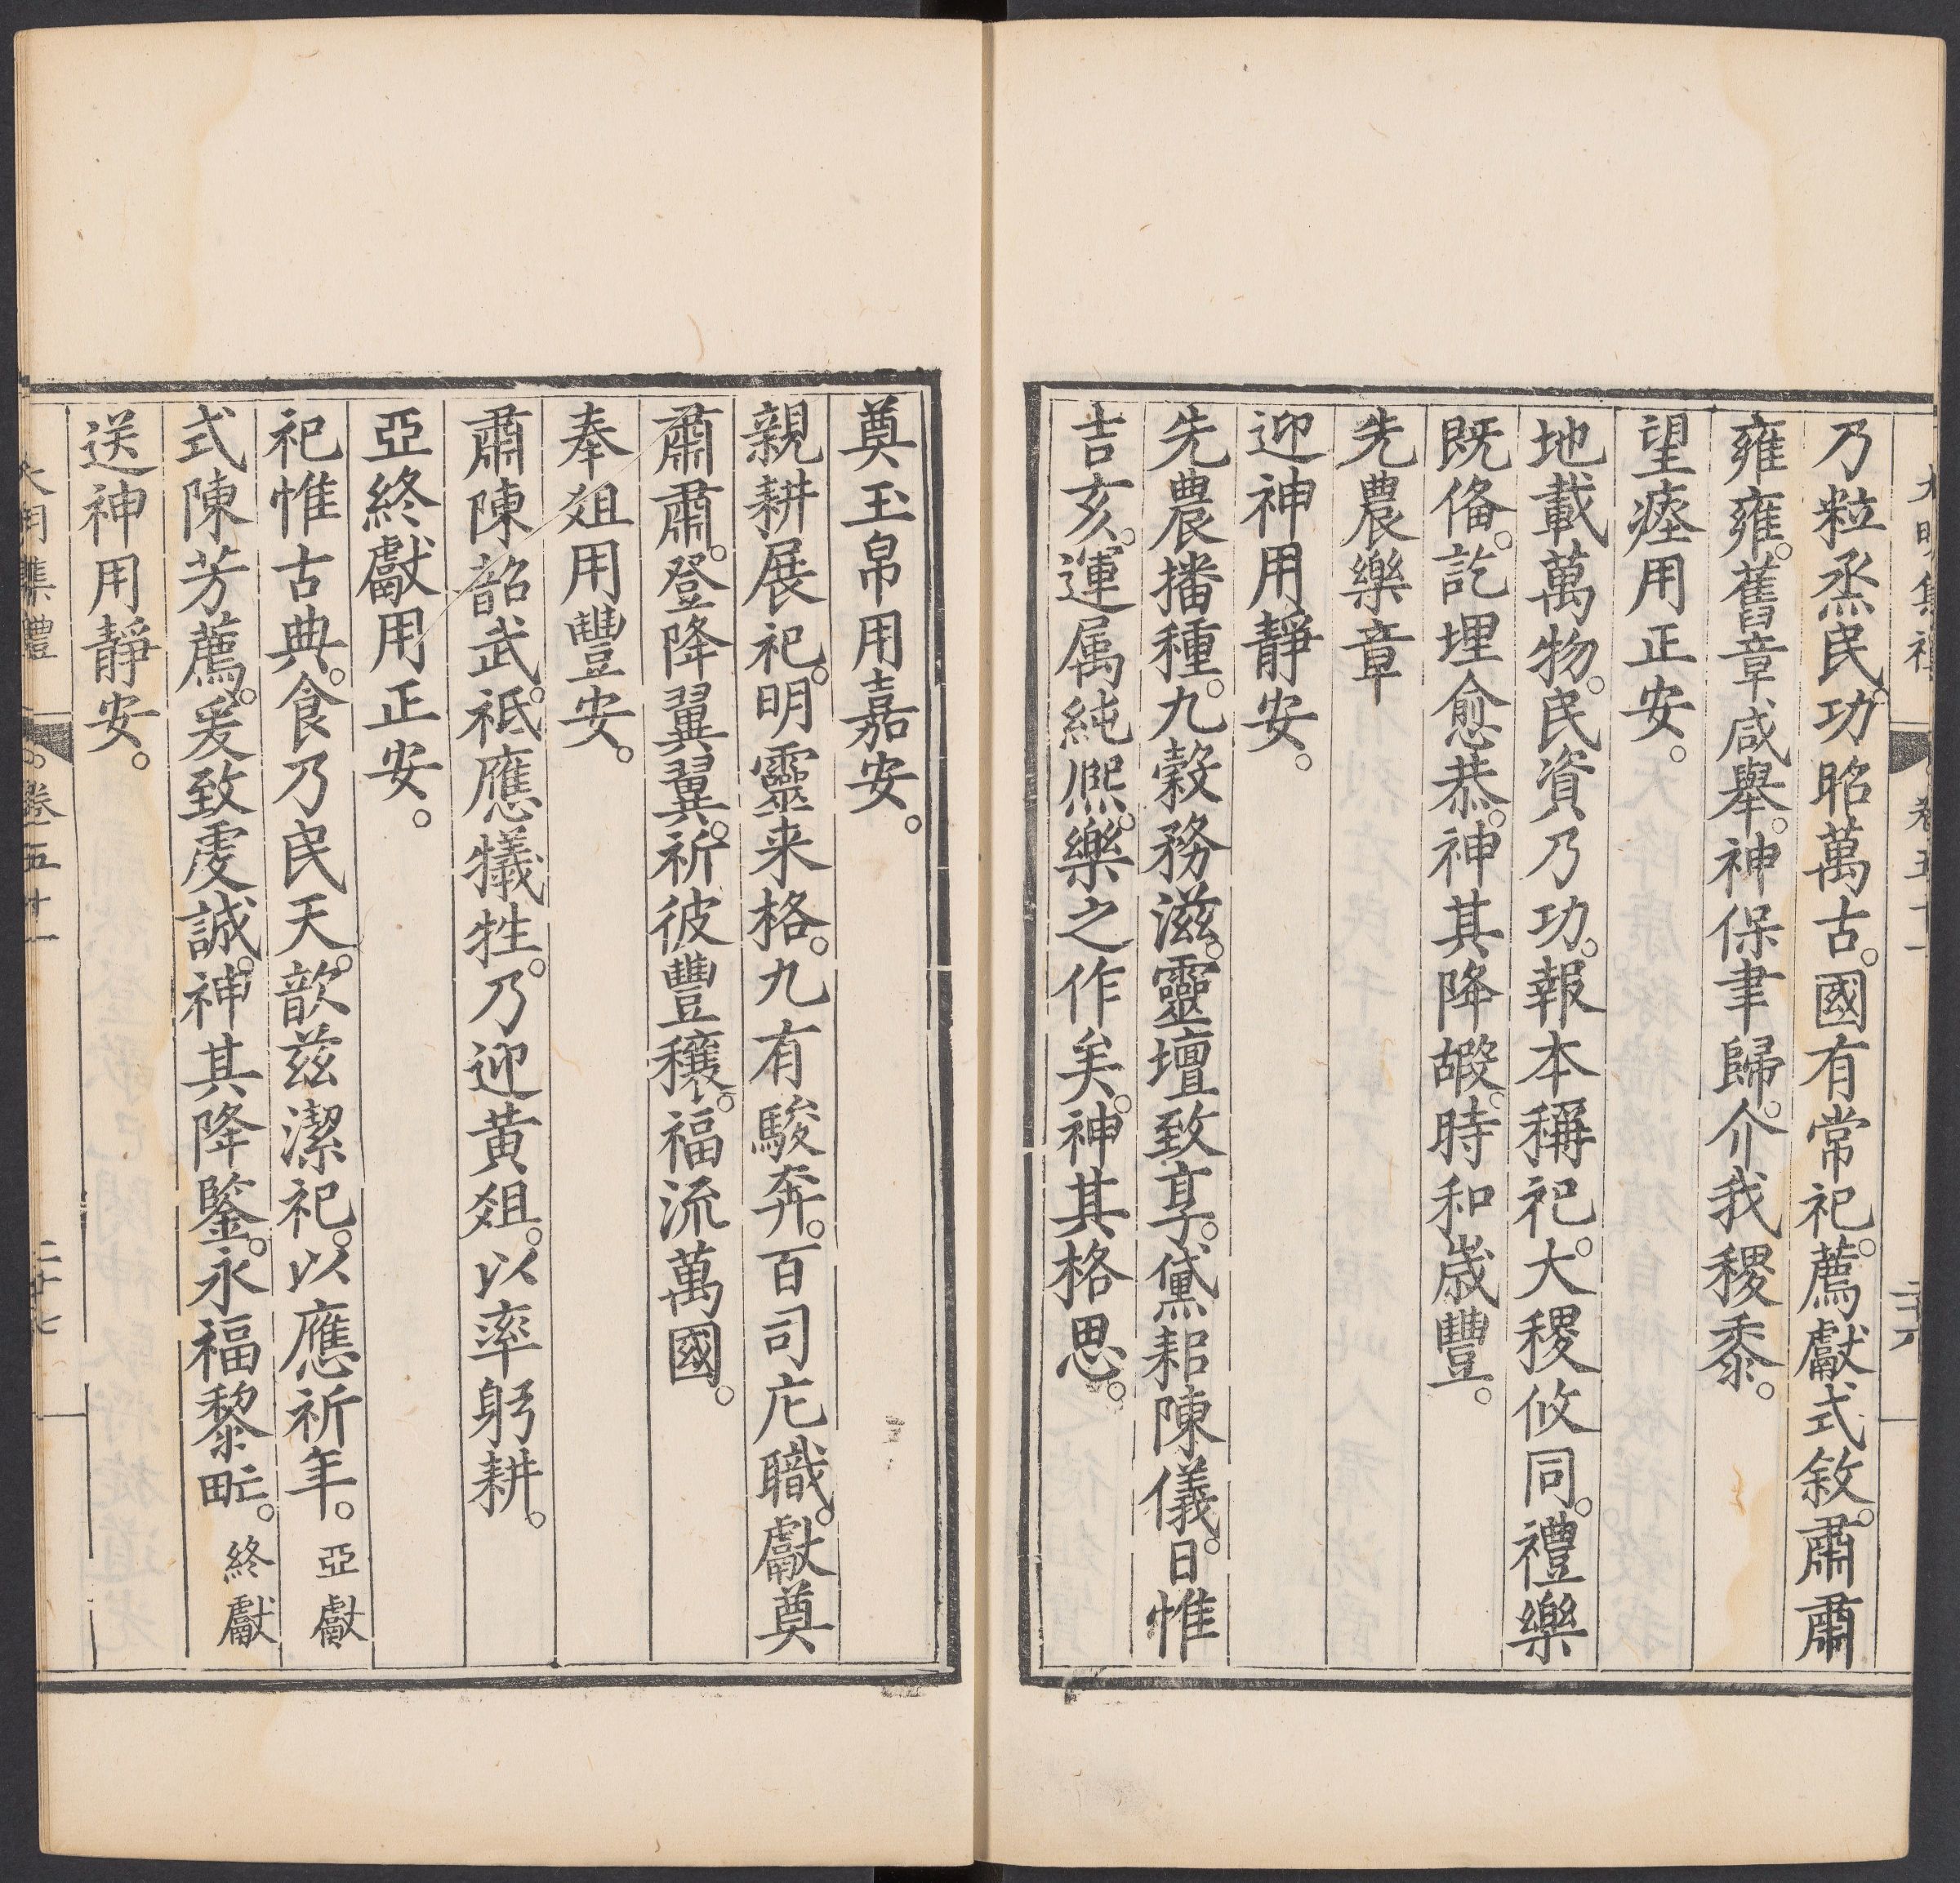 大明集禮 卷五十一 二十六
乃粒烝民。功昭萬古。國有常祀。薦獻式敘。肅肅
雍雍。舊章咸舉。神保聿歸。介我稷黍。
望瘞用正安。
地載萬物。民資乃功。報本稱祀。大稷攸同。禮樂
既俻。訖埋愈恭。神其降嘏。時和歲豐。
先農樂章
迎神用靜安。
先農播種。九穀務滋。靈壇致享。黛耜陳儀。日惟
吉亥。運属純熈。樂之作矣。神其格思。
奠玉帛用嘉安。
親耕展祀。明靈来格。九有駿奔。百司庀職。獻奠
肅肅。登降翼翼。祈彼豐穰。福流萬國。
奉俎用豐安。
肅陳韶武。祗應犧牲。乃迎黄俎。以率躬耕。
亞終獻用正安。
祀惟古典。食乃民天。歆兹潔祀。以應祈年。亞獻
式陳芳薦。爰致虔誠。神其降鑒。永福黎甿。終獻
送神用靜安。
大明集禮 卷五十一 二十七